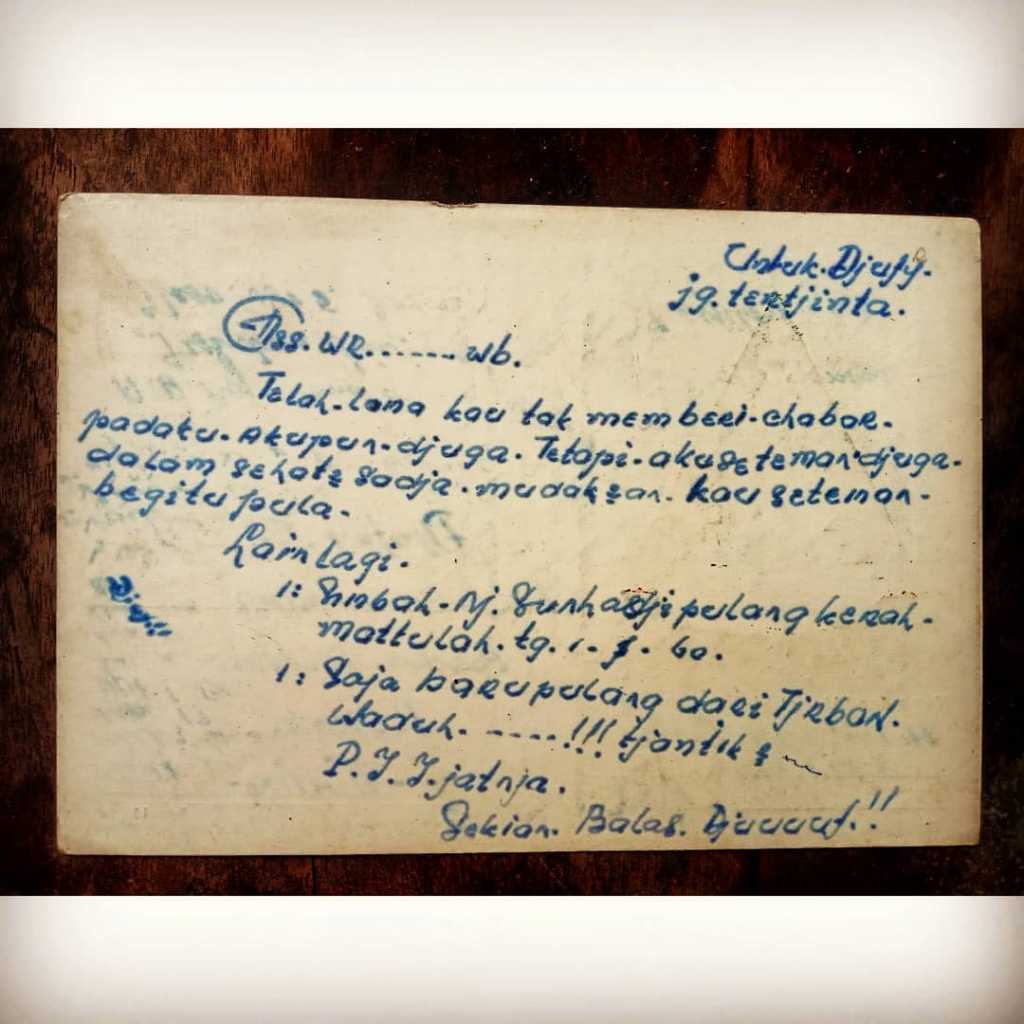 Untuk. Djufy.
jg. tertjinta.
Ass. WR....... wb.
Telah. lama kau tak memberi. chabar.
padaku. Akupun. djuga. Tetapi. aku se teman djuga.
dalam sehat2 sadja. mudah2an. kau seteman.
begitu pula.
Lain lagi.
1: Simbah. Nj. Surhadji pulang kerah.
mattulah. tg. 1 - 60.
1: Saja baru pulang dari Tjrbon.
Waduh. ----!!! tjantik2
P.I.I. jatnja.
Sekian. Balas. Djuuuuf.!!